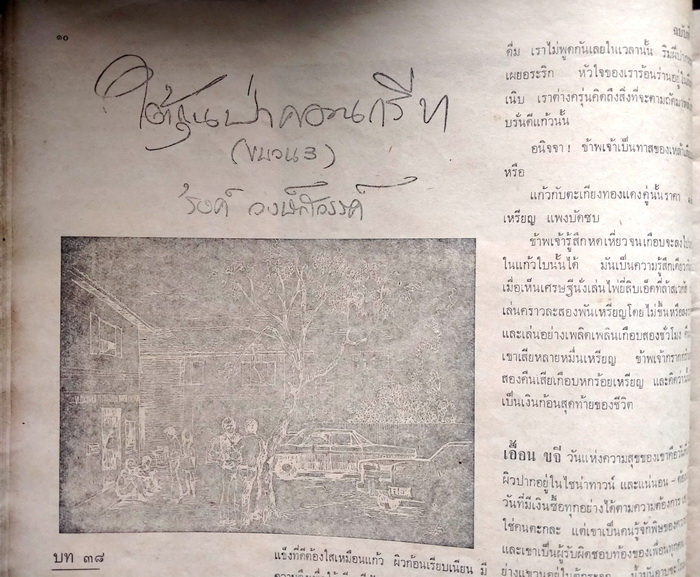 ๑๐
ใต้ถุนป่าคอนกรีท
(ขบวน 3)
รงค์ วงษ์สวรรค์
บท ๓๘
แข็งที่ดีต้องใสเหมือนแก้ว ผิวก้อนเรียบเนียน มี
ดื่ม เราไม่พูดกันเลยในเวลานั้น
เผยอระริก หัวใจของเราร้อนร่านอยู่
เนิบ เราต่างครุ่นคิดถึงสิ่งที่จะตามถัด
บรั่นดีแก้วนั้น
อนิจจา! ข้าพเจ้าเป็นทาสของ
หรือ
แก้วกับตะเกียงทองแดงคู่นั้นราคา
เหรียญ แพงบัดซบ
ข้าพเจ้ารู้สึกหดเหี่ยวจนเกือบจะลง
ในแก้วใบนั้นได้ มันเป็นความรู้สึก
เมื่อเห็นเศรษฐีนั่งเล่นไพ่ยี่สิบเอ็ดที่
เล่นคราวละสองพันเหรียญโดยไม่
และเล่นอย่างเพลิดเพลินเกือบสองชั่วโมง
เขาเสียหลายหมื่นเหรียญ ข้าพเจ้า
สองคืนเสียเกือบหกร้อยเหรียญ และคิดว่า
เป็นเงินก้อนสุดท้ายของชีวิต
เอือน ขจี วันแห่งความสุขของเขาคือ
ผิวปากอยู่ในไชน่าทาวน์ และแน่นอน -
วันที่มีเงินซื้อทุกอย่างได้ตามความต้องการ
ใช่คนตะกละ แต่เขาเป็นคนรู้จักพิษของ
และเขาเป็นผู้รับผิดชอบท้องของเพื่อนทุกคน